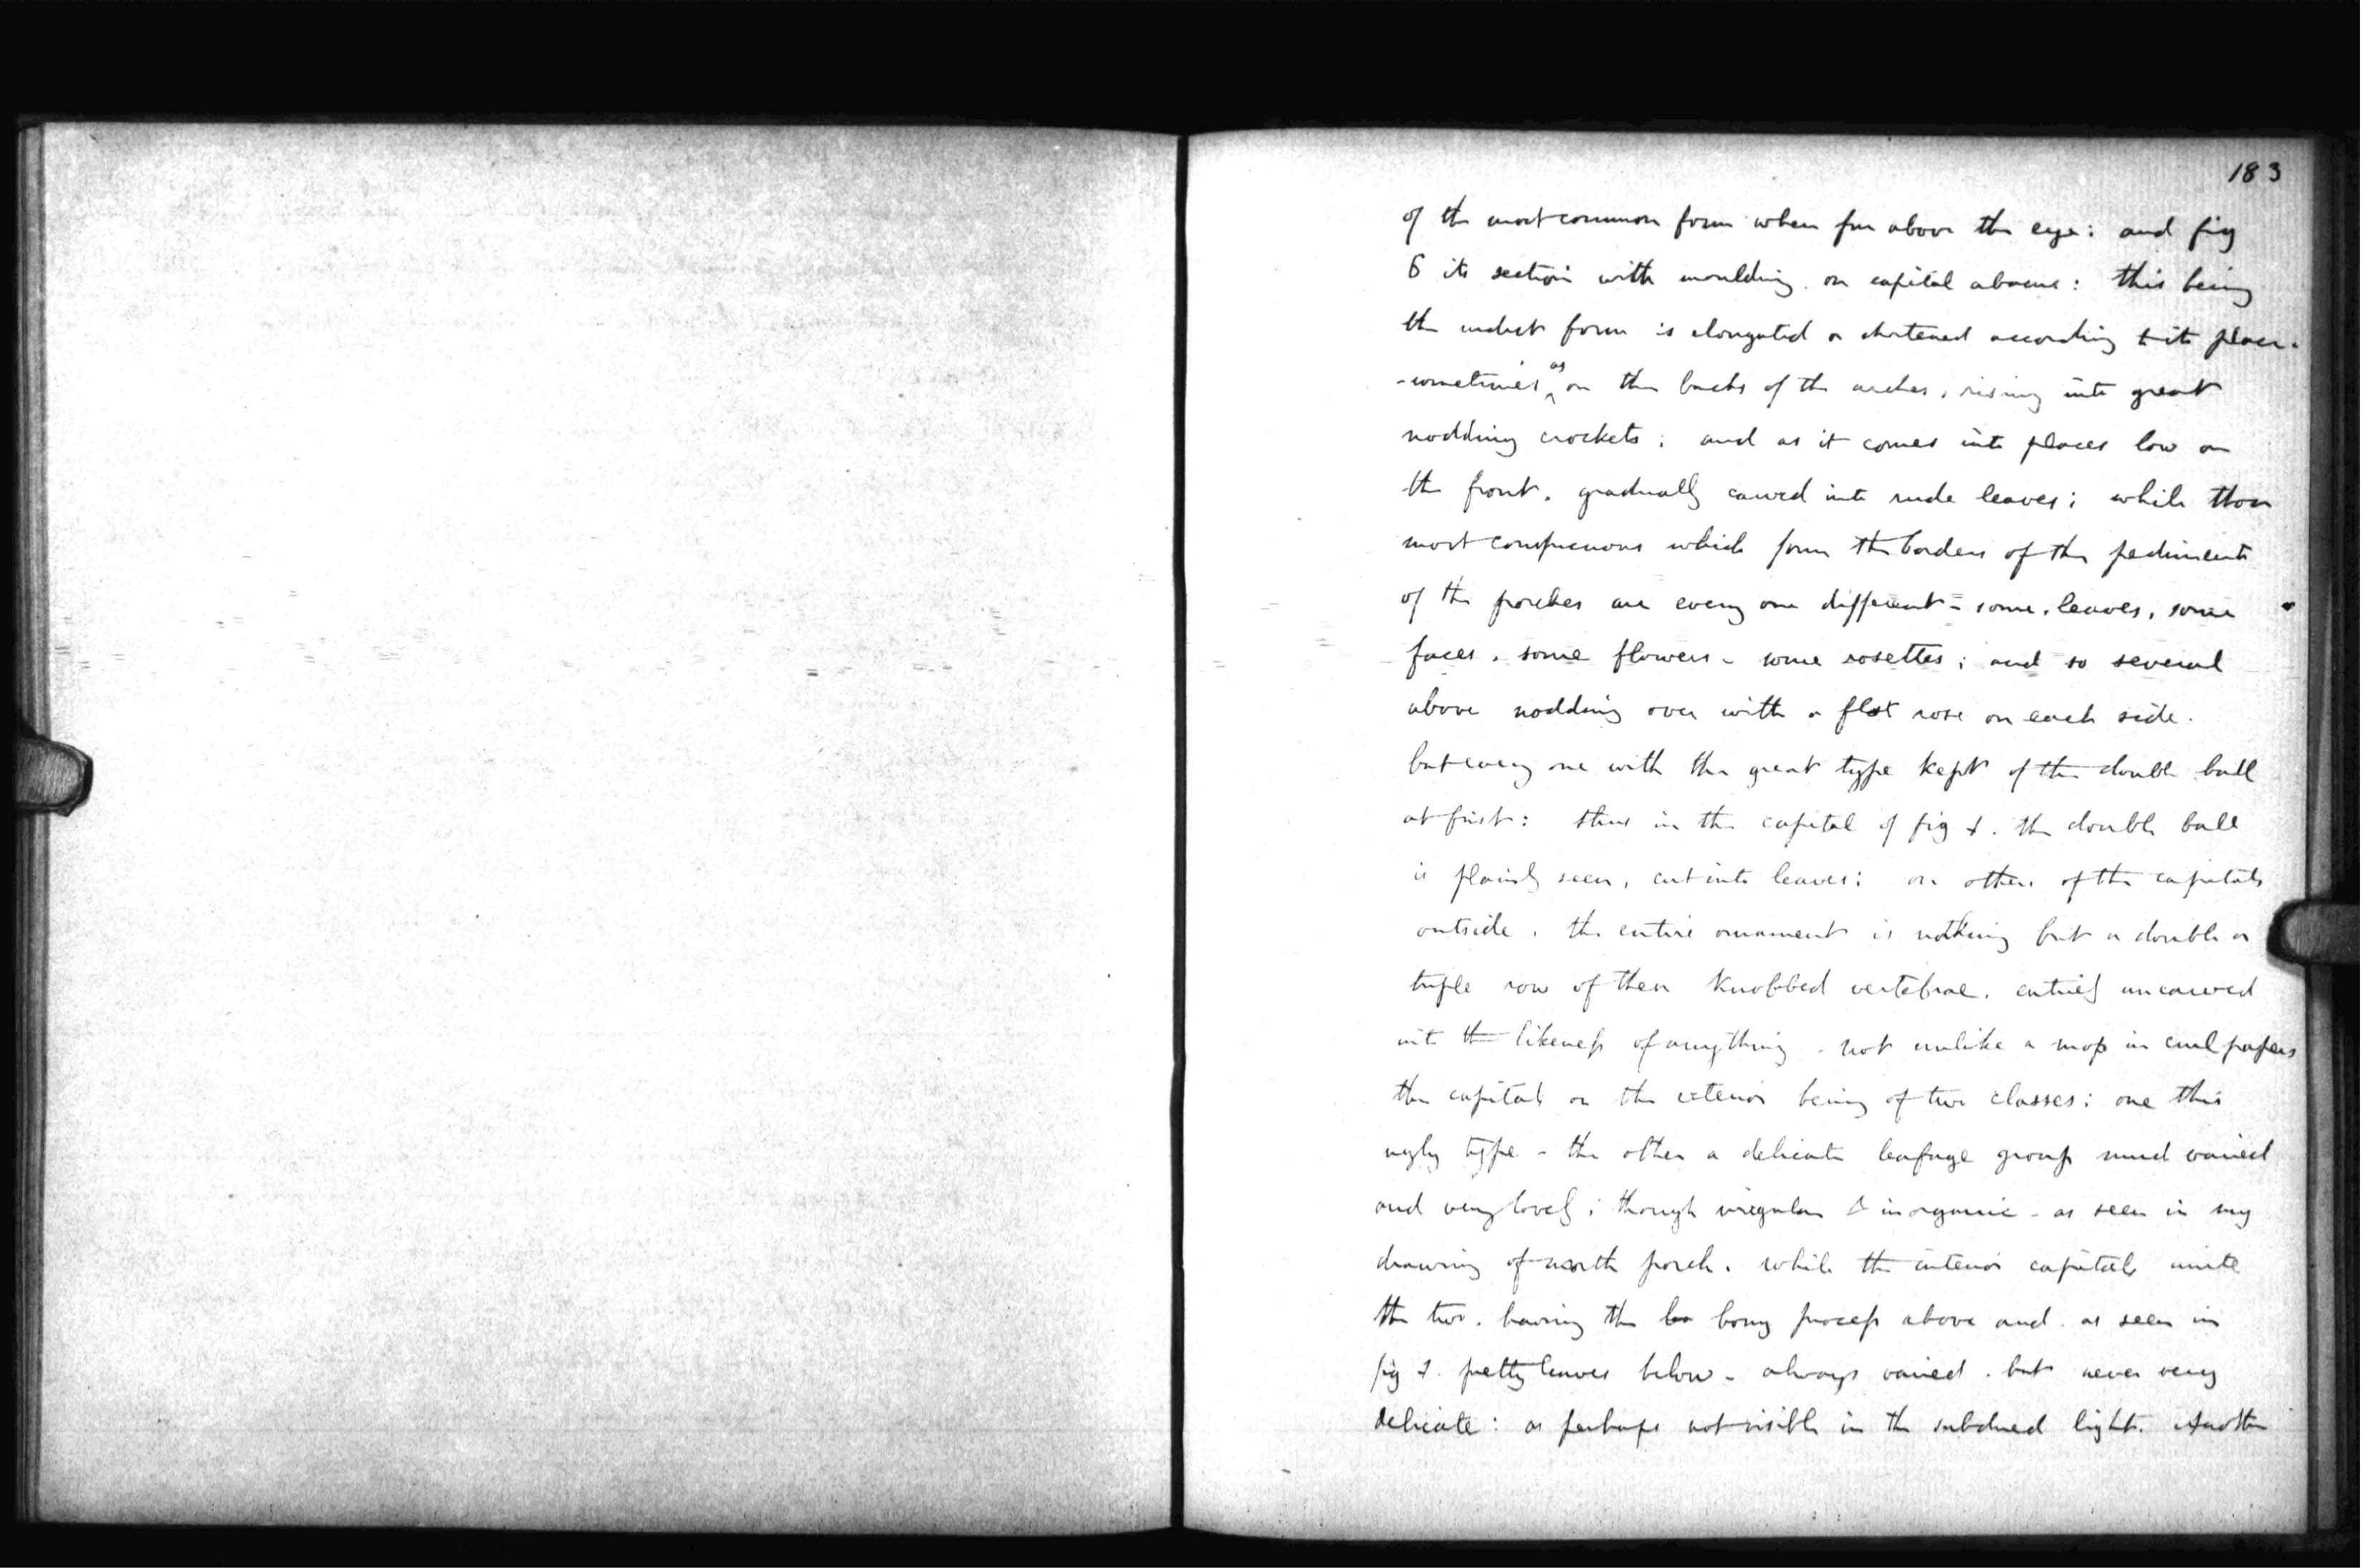 183
of the most common form when far above the eye: and fig
6 its section with moulding. on capital above: this being
the form is elongated or shortened according to its place.
- sometimes, as on the backs of the arches, rising into great
nodding crockets; and as it comes into places low on
the front, gradually carved into rude leaves; while those
most conspicuous which form the borders of the pediments
of the porches are every one different - some, leaves, some
faces, some flowers - some rosettes; and so several
above nodding over with a flat rose on each side.
but every one with the great type kept of the double ball
at first: thus in the capital of fig the double ball
is plainly seen, cut into leaves: on others of the capitals
outside, the entire ornament is nothing but a double or
triple row of these knobbed vertebrae, entirely uncarved
into the likeness of anything - not unlike a mop in curl papers
the capitals on the exterior being of two classes: one this
ugly type - the other a delicate leafage group much varied
and very lovely; though irregular & inorganic - as seen in my
drawing of north porch. while the interior capitals unite
the two. having the bo bony process above and. as seen in
fig pretty leaves below - always varied. but never very
delicate: as perhaps not visible in the subdued light. Another